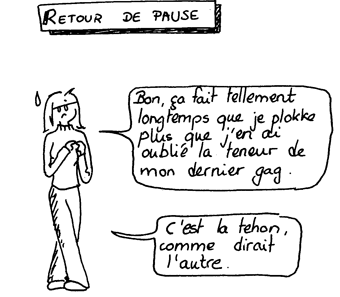 RETOUR DE PAUSE
Bon, ça fait tellement
longtemps que je plokke
plus que j'en ai
oublié la teneur de
mon dernier gag.
C'est la tehon,
comme dirait
l'autre.